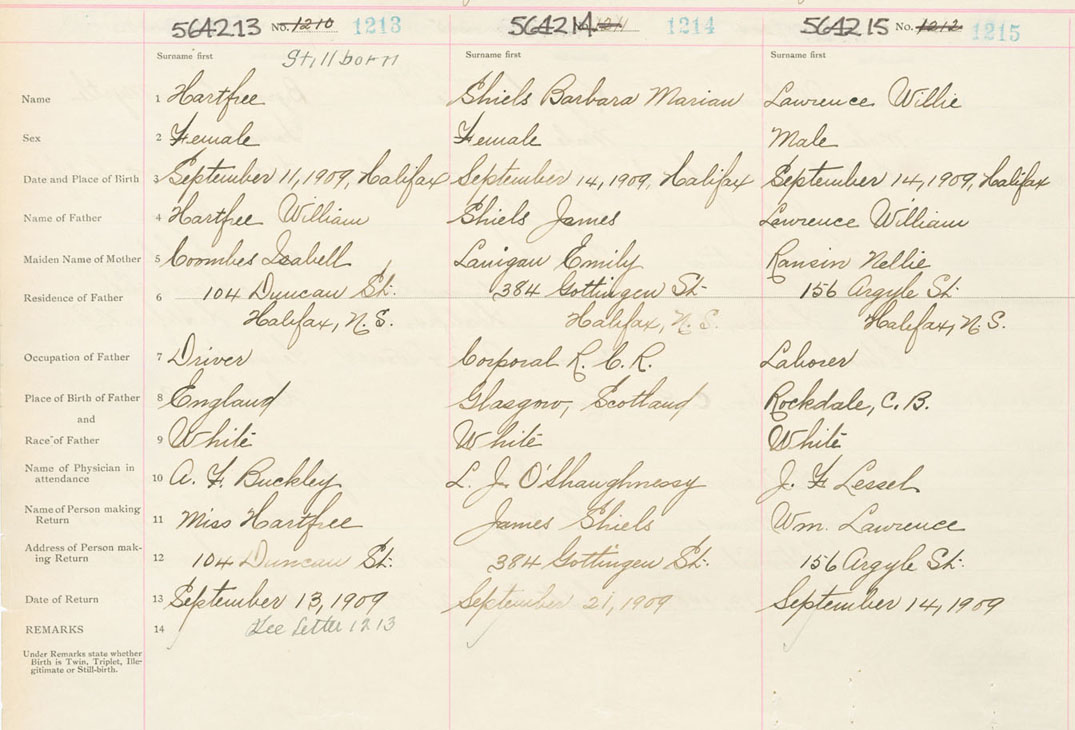 564213 No. 1210 1213 564214 1211 1214 564215 No. 1212 1215
Surname first Stillborn Surname first Surname first
Name 1 Hartfree Shiels Barbara Marian Lawrence Willie
Sex 2 Female Female Male
Date and Place of Birth 3 September 11, 1909, Halifax September 14, 1909, Halifax September 14, 1909, Halifax
Name of Father 4 Hartfree William Shiels James Lawrence William
Maiden Name of Mother 5 Coombes Isabell Lanigan Emily Ransin Nellie
Residence of Father 6 104 Duncan St. 384 Gottingen St. 156 Argyle St.
Halifax, N.S. Halifax, N.S. Halifax, N.S.
Occupation of Father 7 Driver Corporal R. C. R. Laborer
Place of Birth of Father 8 England Glasgow, Scotland Rockdale, C. B.
and
Race of Father 9 White White White
Name of Physician in
attendance 10 A. F. Buckley L. J. O'Shaughnessy J. F. Lessel
Name of Person making
Return 11 Miss Hartfree James Shiels Wm. Lawrence
Address of Person mak-
ing Return 12 104 Duncan St. 384 Gottingen St. 156 Argyle St.
Date of Return 13 September 13, 1909 September 21, 1909 September 14, 1909
REMARKS 14 See Letter 1213
Under Remarks state whether
Birth is Twin, Triplet, Ille-
gitimate or Still-birth.